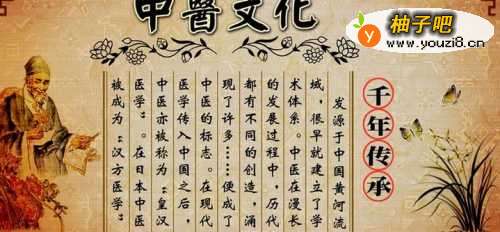 中醫文化
柚子吧
www.youzi8.cn
千年传承
发源于中国黄河流
域，很早就建立了学
术体系。中医在漫长
的发展过程中，历代
都有不同的创造，涌
现了许多……便成了
中医的标志。在现代
医学传入中国之后，
中医亦被称为“皇汉
医学”。在日本中医
被成为“汉方医学”